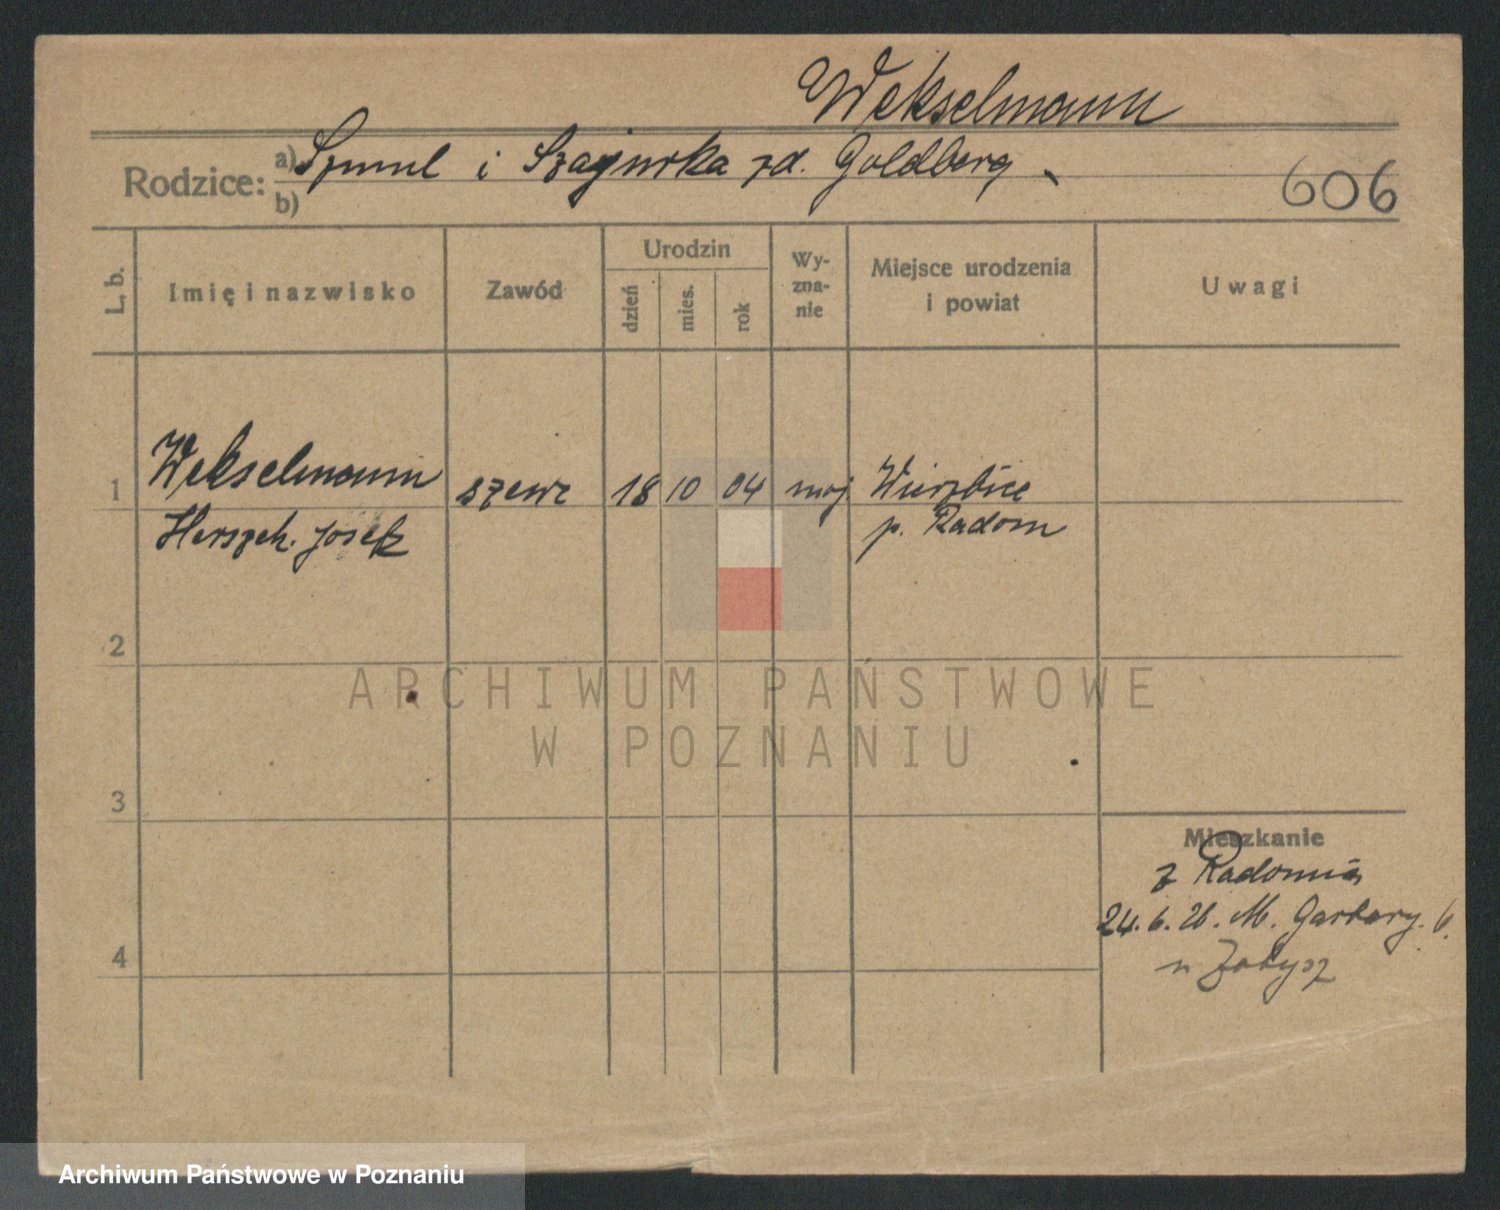 Wekselmann
Rodzice: a) Szmul i Szajndka zd. Goldberg
b)
606
L. b. Imię i nazwisko Zawód Urodzin dzień mies. rok Wy-zna-nie Miejsce urodzenia i powiat Uwagi
1 Wekselmann szewc 18 10 04 moj. Wierzbice
Herszch. Josek p. Radom
2
3
4
Mieszkanie
z Radomia
24. 6. 26. M. Garbary. 6.
u
ARCHIWUM PAŃSTWOWE
W POZNANIU
Archiwum Państwowe w Poznaniu